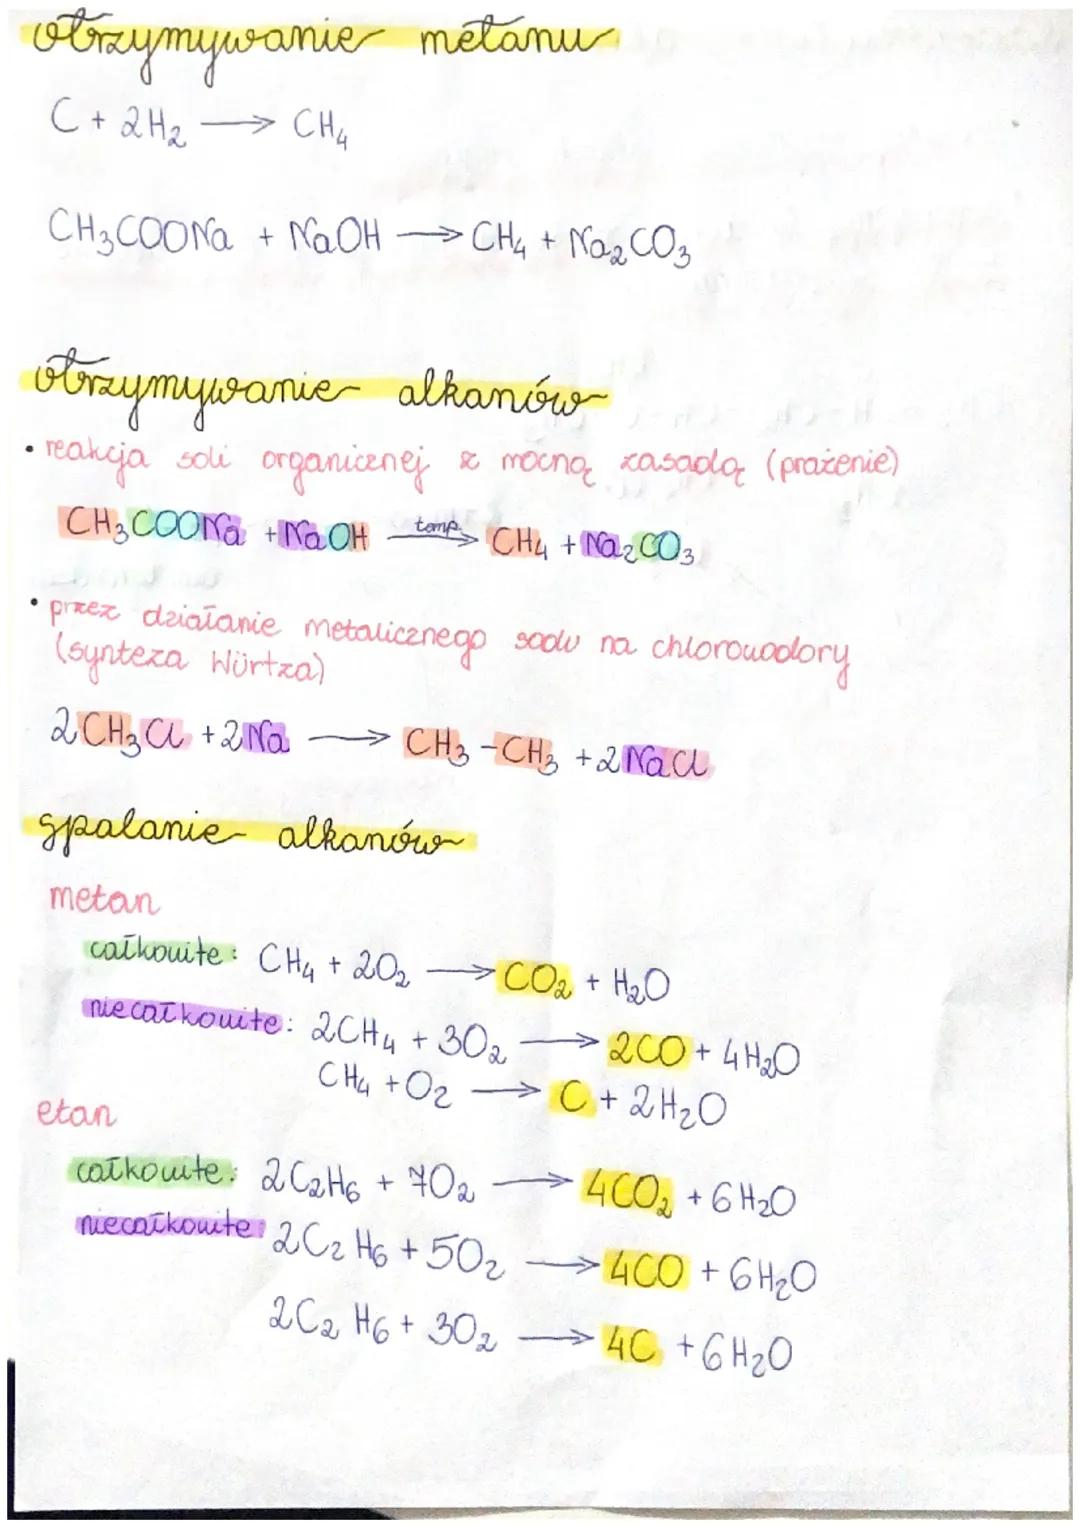 otrzymywanie metanu
C + 2H₂ → CH₄
CH₃COONa + NaOH → CH₄ + Na₂CO₃
otrzymywanie alkanów
• reakcja soli organicznej z mocną zasadą (prażenie)
CH₃COONa + NaOH temp. → CH₄ + Na₂CO₃
• przez działanie metalicznego sodu na chlorowodory
(synteza Würtza)
2CH₃Cl + 2Na → CH₃-CH₃ + 2NaCl
spalanie alkanów
metan
całkowite: CH₄ + 2O₂ → CO₂ + H₂O
niecałkowite: 2CH₄ + 3O₂ → 2CO + 4H₂O
CH₄ + O₂ → C + 2H₂O
etan
całkowite: 2C₂H₆ + 7O₂ → 4CO₂ + 6H₂O
niecałkowite: 2C₂H₆ + 5O₂ → 4CO + 6H₂O
2C₂H₆ + 3O₂ → 4C + 6H₂O